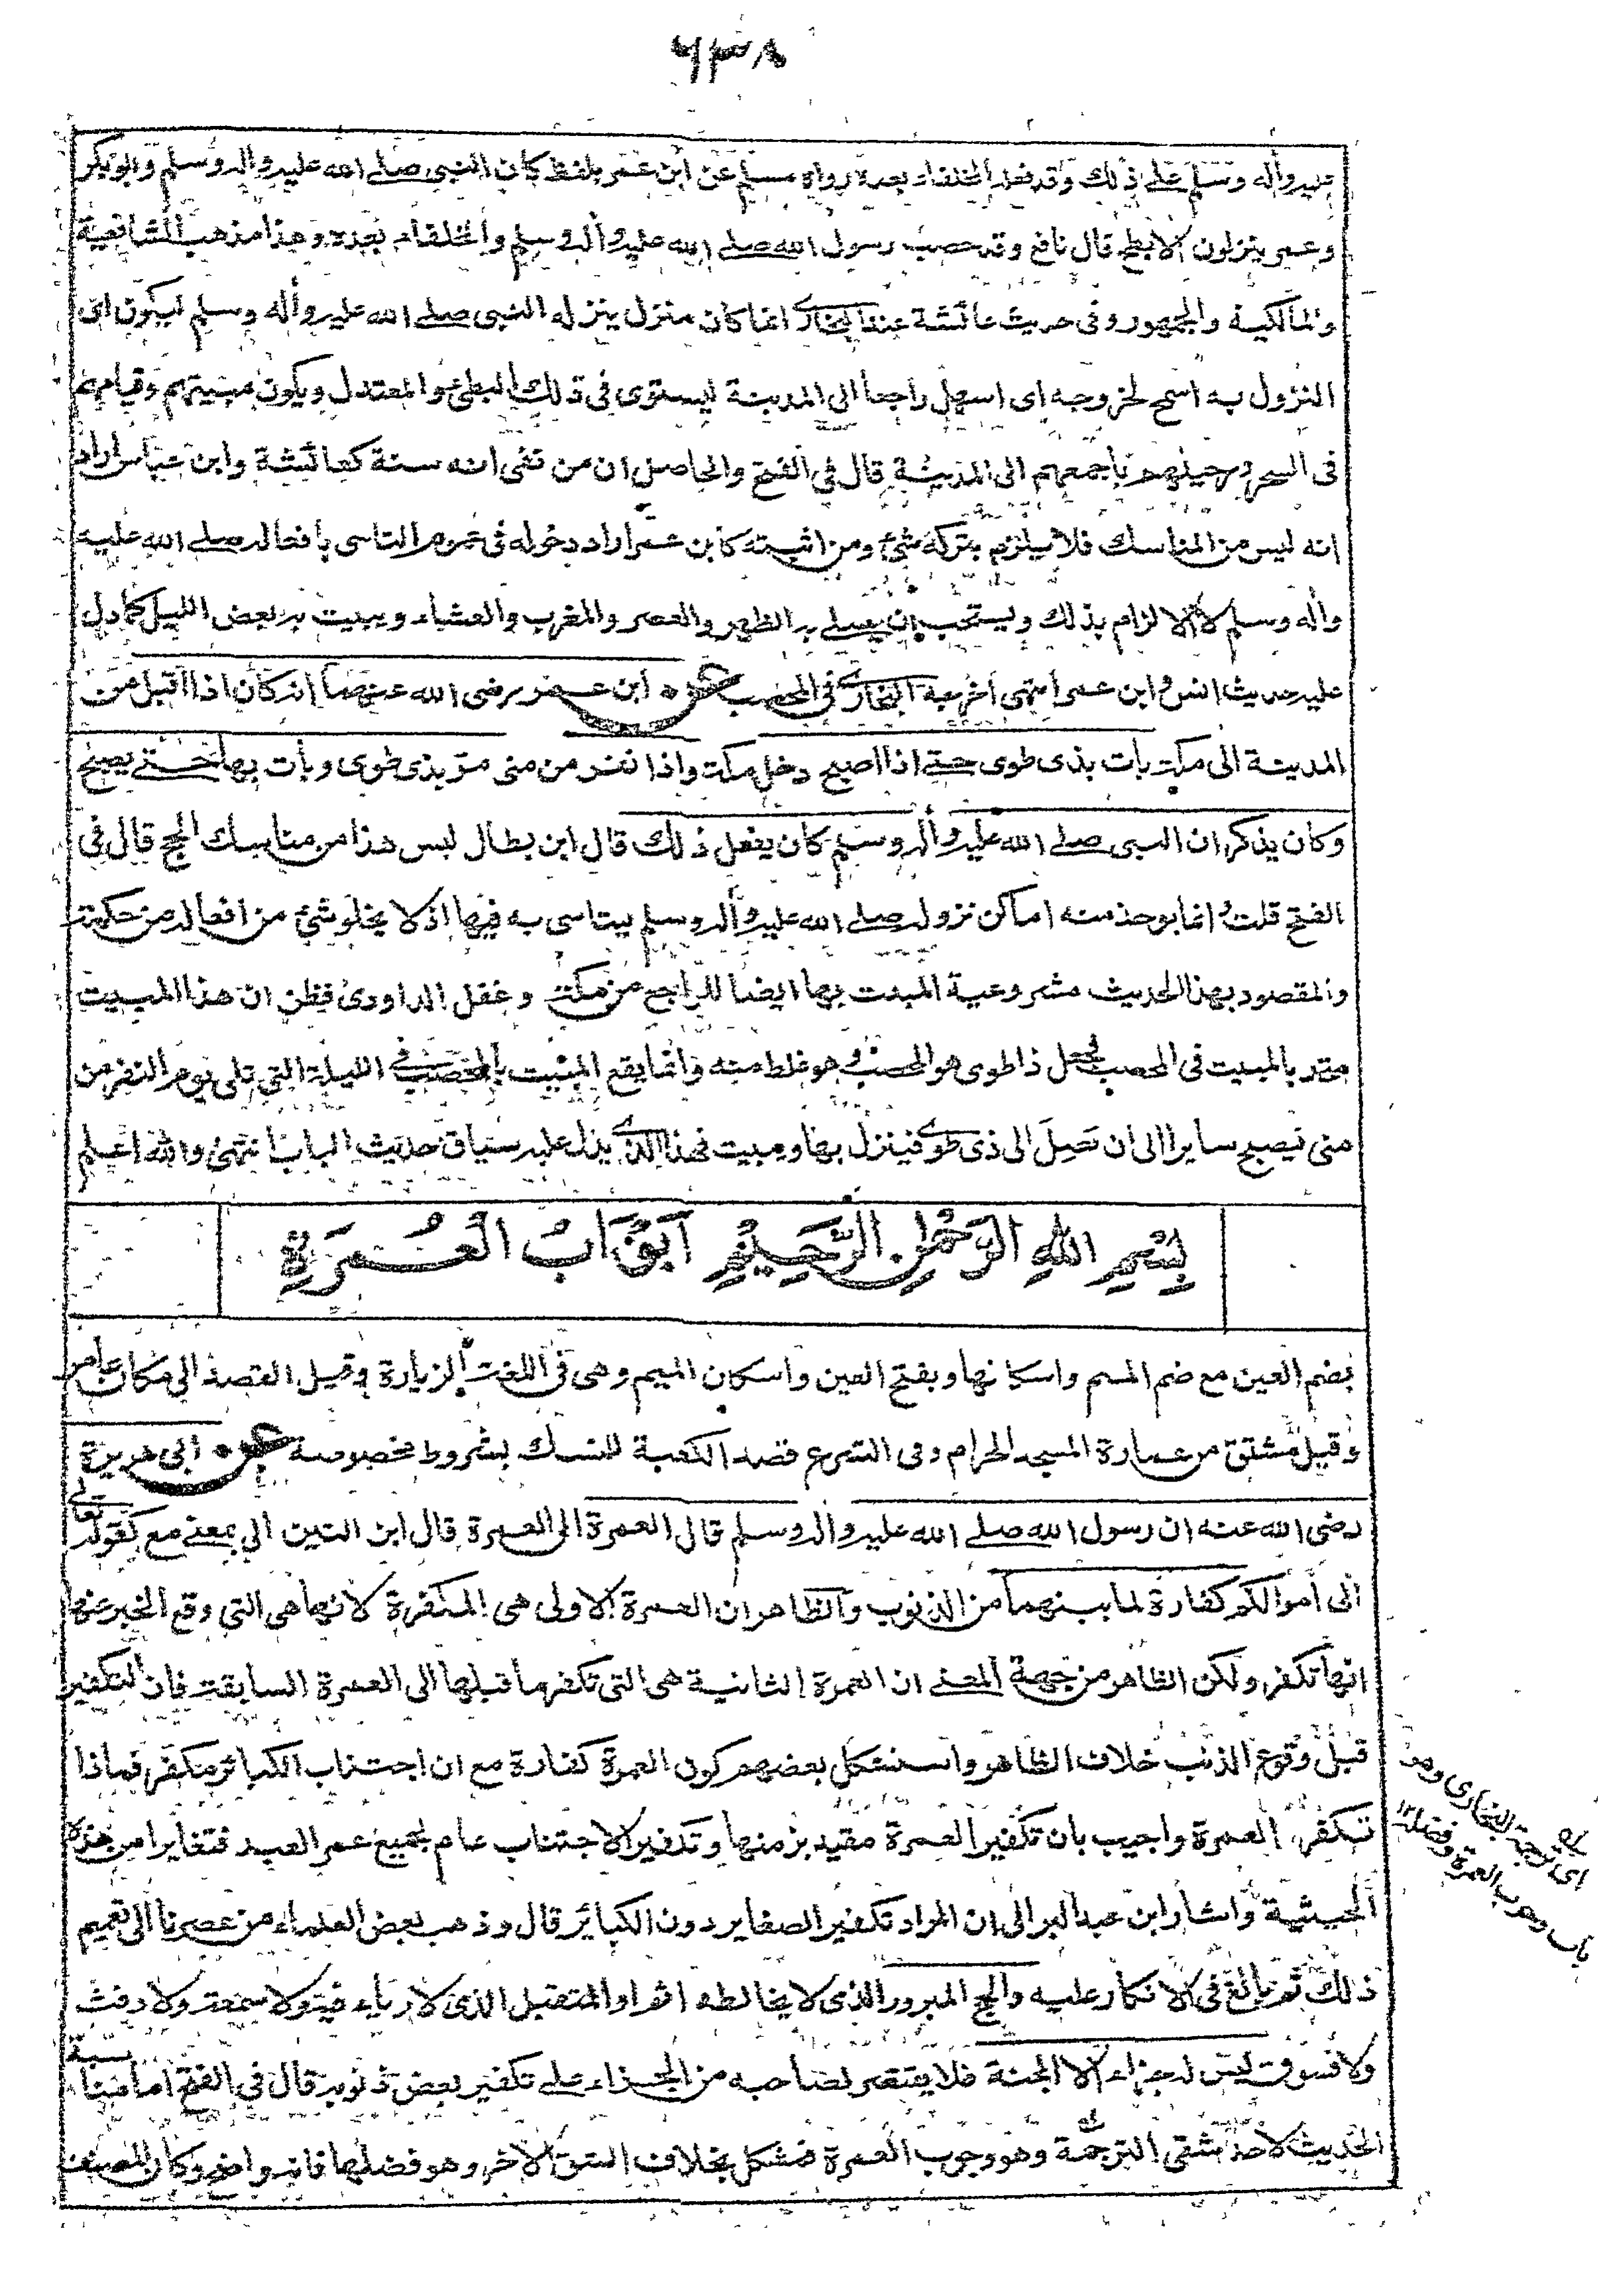 ٦٣٨
عليه وأله وسلم على ذلك وقد فعله الخلفاء بعده رواه مسلم عن ابن عمر بلفظ كان النبى صلى الله عليه واله وسلم وابوبكر
وعمر ينزلون الابطح قال نافع وقد حصب رسول الله صلى الله عليه وأله وسلم والخلفاء بعده وهذا مذهب الشافعية
والمالكية والجمهور وفى حديث عائشة عند البخارى انما كان منزل ينزله النبى صلى الله عليه وأله وسلم ليكون اى
النزول به اسمح لخروجه اى اسهل راجعا الى المدينة ليستوى فى ذلك البطئ والمعتدل ويكون مبيتهم وقيامهم
فى السحر ورحيلهم باجمعهم الى المدينة قال فى الفتح والحاصل ان من نفى انه سنة كعائشة وابن عباس اراد
انه ليس من المناسك فلا يلزم بتركه شئ ومن اثبته كابن عمر اراد دخوله فى عموم التاسى بافعاله صلى الله عليه
واله وسلم لا الالزام بذلك ويستحب ان يصلى به الظهر والعصر والمغرب والعشاء ويبيت به بعض الليل كما دل
عليه حديث انس وابن عمر انتهى اخرجه البخارى فى المحصب عن ابن عمر رضى الله عنهما انه كان اذا اقبل من
المدينة الى مكة بات بذى طوى حتى اذا اصبح دخل مكة واذا نفر من منى مر بذى طوى وبات بها حتى يصبح
وكان يذكر ان النبى صلى الله عليه وأله وسلم كان يفعل ذلك قال ابن بطال ليس هذا من مناسك الحج قال فى
الفتح قلت انما يوخذ منه اماكن نزوله صلى الله عليه وأله وسلم يتاسى به فيها اذ لا يخلو شئ من افعاله من حكمة
والمقصود بهذا الحديث مشروعية المبيت بها ايضا للراجع من مكة وغفل الداودى فظن ان هذا المبيت
متحد بالمبيت فى المحصب فجعل ذا طوى هو المحصب وهو غلط منه وانما يقع المبيت بالمحصب فى الليلة التى تلى يوم النفر من
منى فيصبح سايرا الى ان تصل الى ذى طوى فينزل بها ويبيت فهذا الذى يدل عليه سياق حديث الباب انتهى والله اعلم
بِسْمِ اللهِ الرَّحْمٰنِ الرَّحِيْمِ اَبْوَابُ الْعُمْرَةِ
بضم العين مع ضم الميم واسكانها وبفتح العين واسكان الميم وهى فى اللغة الزيارة وقيل القصد الى مكان عامر
وقيل مشتق من عمارة المسجد الحرام وفى الشرع قصد الكعبة للنسك بشروط مخصوصة عن ابى هريرة
رضى الله عنه ان رسول الله صلى الله عليه واله وسلم قال العمرة الى العمرة قال ابن التين الى بمعنى مع كقوله تعالى
الى أموالكم كفارة لما بينهما من الذنوب والظاهر ان العمرة الاولى هى المكفرة لانها هى التى وقع الخبر عنها
انها تكفر ولكن الظاهر من جهة المعنى ان العمرة الثانية هى التى تكفر ما قبلها الى العمرة السابقة فان التكفير
قبل وقوع الذنب خلاف الظاهر واستشكل بعضهم كون العمرة كفارة مع ان اجتناب الكبائر مكفر فماذا
تكفره العمرة واجيب بان تكفير العمرة مقيد بزمنها وتكفير الاجتناب عام لجميع عمر العبد فتغايرا من هذه
الحيثية واشار ابن عبد البر الى ان المراد تكفير الصغاير دون الكبائر قال وذهب بعض العلماء من عصرنا الى تعميم
ذلك ثم بالغ فى الانكار عليه والحج المبرور الذى لا يخالطه اثم او المتقبل الذى لا رياء فيه ولا سمعة ولا رفث
ولا فسوق ليس له جزاء الا الجنة فلا يقتصر لصاحبه من الجزاء على تكفير بعض ذنوبه قال فى الفتح اما مناسبة
الحديث لاحد شقى الترجمة وهو وجوب العمرة فمشكل بخلاف الشق الاخر وهو فضلها فانه واضح وكأن المصنف
اى ترجمة البخارى وهو
باب وجوب العمرة وفضلها ١٢